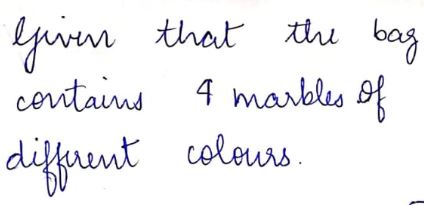 Given that the bag
contains 4 marbles of
different colours.